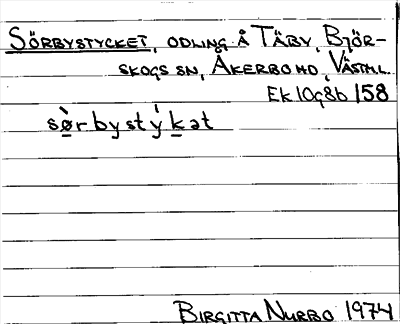 SÖRBYSTYCKET, ODLING Å TÄBY, BJÖR-
SKOGS SN, ÅKERBO HD, VÄSTML.
EK 10g8b 158
sø̀rbystýkət
BIRGITTA NURBO 1974